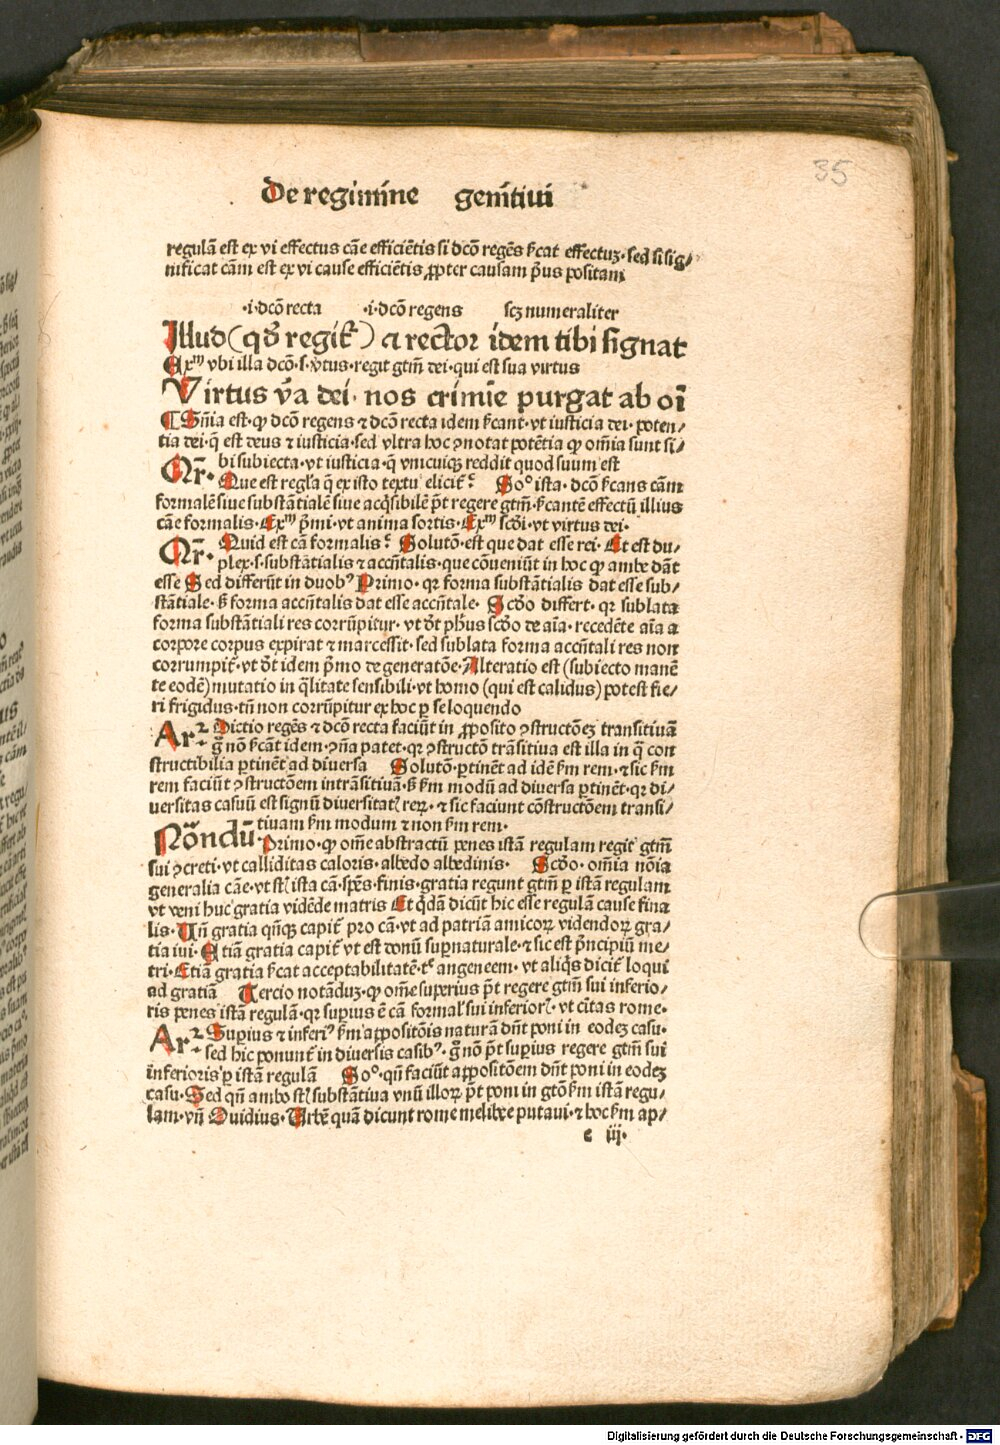 35
De regimine genitiui
regulā est ex vi effectus cāe efficiētis si dcō regēs ſcat effectuꝫ· sed si sig⸗
nificat cām est ex vi cause efficiētis ꝓpter causam pͥus positam
·i·dcō recta ·i·dcō regens scꝫ numeraliter
Illud (qͦd regit᷑) ⁊ a rector idem tibi signat
Exᵐ vbi illa dcō·s·v̓tus·regit gtm̄ dei·qui est sua virtus
Virtus v̄a dei· nos crimīe purgat ab oī
¶ Sn̄ia est·ꝙ dcō regens ⁊ dcō recta idem ſcant·vt iusticia dei·poten⸗
tia dei·q̄ est deus ⁊ iusticia·sed vltra hoc ꝯnotat potētia ꝙ om̄ia sunt si⸗
bi subiecta·vt iusticia·q̄ vnicuiqꝫ reddit quod suum est
Qr̄· Que est regl̓a q̄ ex isto textu elicit᷑? Soᵒ ista·dcō ſcans cām
formalē siue substātialē siue acq̄sibilē pt̄ regere gtm̄·ſcantē effectū illius
cāe formalis·Exᵐ pͥmi·vt anima sortis·Exᵐ scd̄i·vt virtus dei·
Qr̄· Quid est cā formalis? Solutō·est que dat esse rei·Et est du⸗
plex·s·substātialis ⁊ accn̄talis·que cōueniūt in hoc ꝙ ambe dāt
esse Sed differūt in duobꝰ Primo·qr forma substātialis dat esse sub⸗
stātiale·s̄ forma accn̄talis dat esse accn̄tale· Scd̄o differt·qr sublata
forma substātiali res corrūpitur·vt d̄t ph̓us scd̄o de aīa·recedēte aīa a
corpore corpus expirat ⁊ marcessit·sed sublata forma accn̄tali res non
corrumpit᷑·vt d̄t idem pͥmo de generatōe·Alteratio est (subiecto manē
te eodē) mutatio in q̄litate sensibili·vt homo (qui est calidus) potest fie⸗
ri frigidus·tn̄ non corrūpitur ex hoc ꝑ se loquendo
Arꝛ· Dictio regēs ⁊ dcō recta faciūt in ꝓposito ꝯstructōeꝫ transitiuā
g̊ nō ſcāt idem·ꝯn̄a patet·qr ꝯstructō trāsitiua est illa in q̄ con
structibilia ꝑtinēt ad diuersa Solutō·ꝑtinēt ad idē ẜm rem·⁊ sic ẜm
rem faciūt ꝯstructōem intrāsitiuā·s̄ ẜm modū ad diuersa ꝑtinēt·qr di⸗
uersitas casuū est signū diuersitatꝭ reꝝ·⁊ sic faciunt cōstructōem transi⸗
tiuam ẜm modum ⁊ non ẜm rem·
Nōndū· Primo·ꝙ om̄e abstractū penes istā regulam regit gtm̄
sui ꝯcreti·vt calliditas caloris·albedo albedinis· Scd̄o·om̄ia nōia
generalia cāe·vt st̄ ista cā·spēs·finis·gratia regunt gtm̄ ꝑ istā regulam
vt veni huc gratia vidēde matris Et q̄dā dicūt hic esse regulā cause fina
lis·Vn̄ gratia qn̄qꝫ capit᷑ pro cā·vt ad patriā amicoꝝ videndoꝝ gra⸗
tia iui·Etiā gratia capit᷑ vt est donū supͣnaturale·⁊ sic est pͥncipiū me⸗
tri·Etiā gratia ſcat acceptabilitatē· vt aliq̄s dicit᷑ loqui
ad gratiā Tercio notādūꝫ·ꝙ om̄e superius pt̄ regere gtm̄ sui inferio⸗
ris penes istā regulā·qr supius ē cā formal̓ sui inferiorꝭ·vt ciͥtas rome·
Arꝛ· Supius ⁊ inferiꝰ ẜm appositōis naturā dn̄t poni in eodeꝫ casu·
sed hic ponunt᷑ in diuersis casibꝰ·g̊ nō pt̄ supius regere gtm̄ sui
inferioris ꝑ istā regulā Soᵒ·qn̄ faciūt appositōem dn̄t poni in eodeꝫ
casu·Sed qn̄ ambo st̄ substātiua vnū illoꝝ pt̄ poni in gtō ẜm istā regu⸗
lam·vn̄ Ouidius·Vrbē quā dicunt rome melibee putaui·⁊ hoc ẜm ap⸗
e iij·
Digitalisierung gefördert durch die Deutsche Forschungsgemeinschaft · DFG